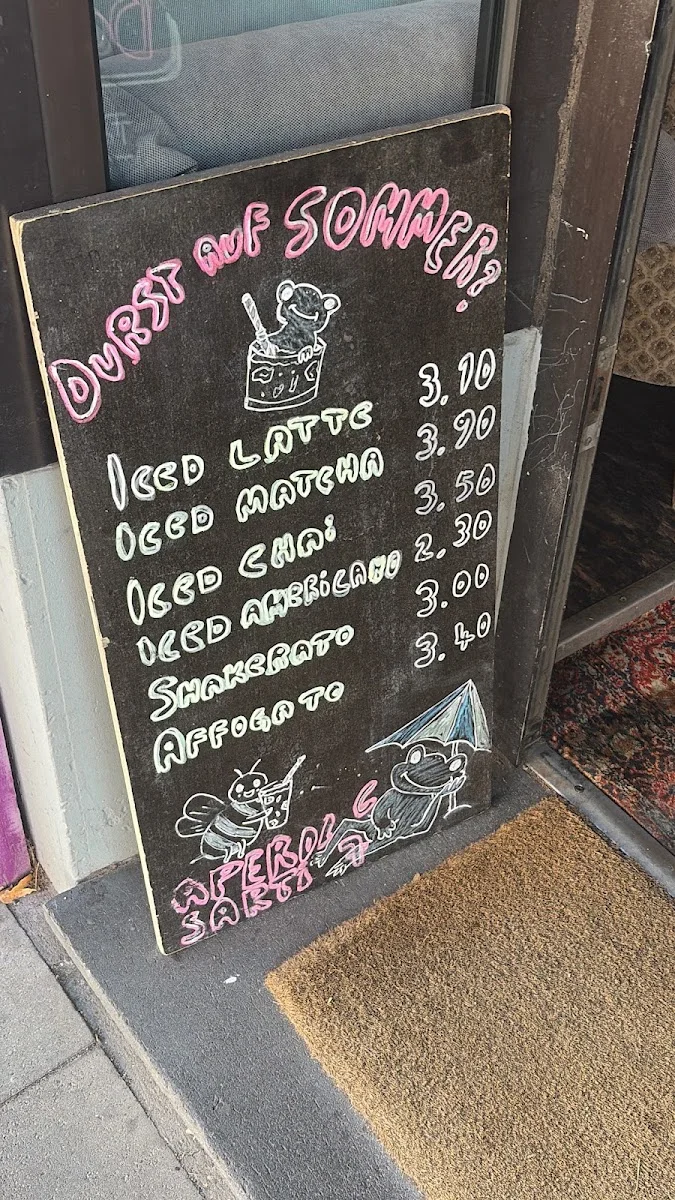 DURST AUF SOMMER?
ICED LATTE 3.10
ICED MATCHA 3.90
ICED CHAi 3.50
ICED AMERiCANO 2.30
SHAKERATO 3.00
AFFOGATO 3.40
APEROL 6
SARTI 7